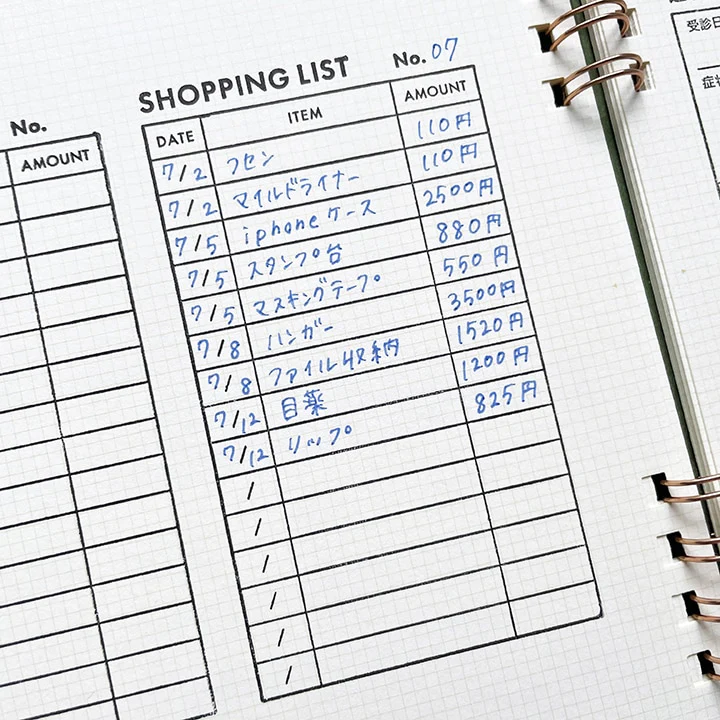 SHOPPING LIST No. 07
DATE ITEM AMOUNT
7/2 フセン 110円
7/2 マイルドライナー 110円
7/5 iphoneケース 2500円
7/5 スタンプ台 880円
7/5 マスキングテープ 550円
7/8 ハンガー 3500円
7/8 ファイル収納 1520円
7/12 目薬 1200円
7/12 リップ 825円
/
/
/
/
/
/
No.
AMOUNT
受診日